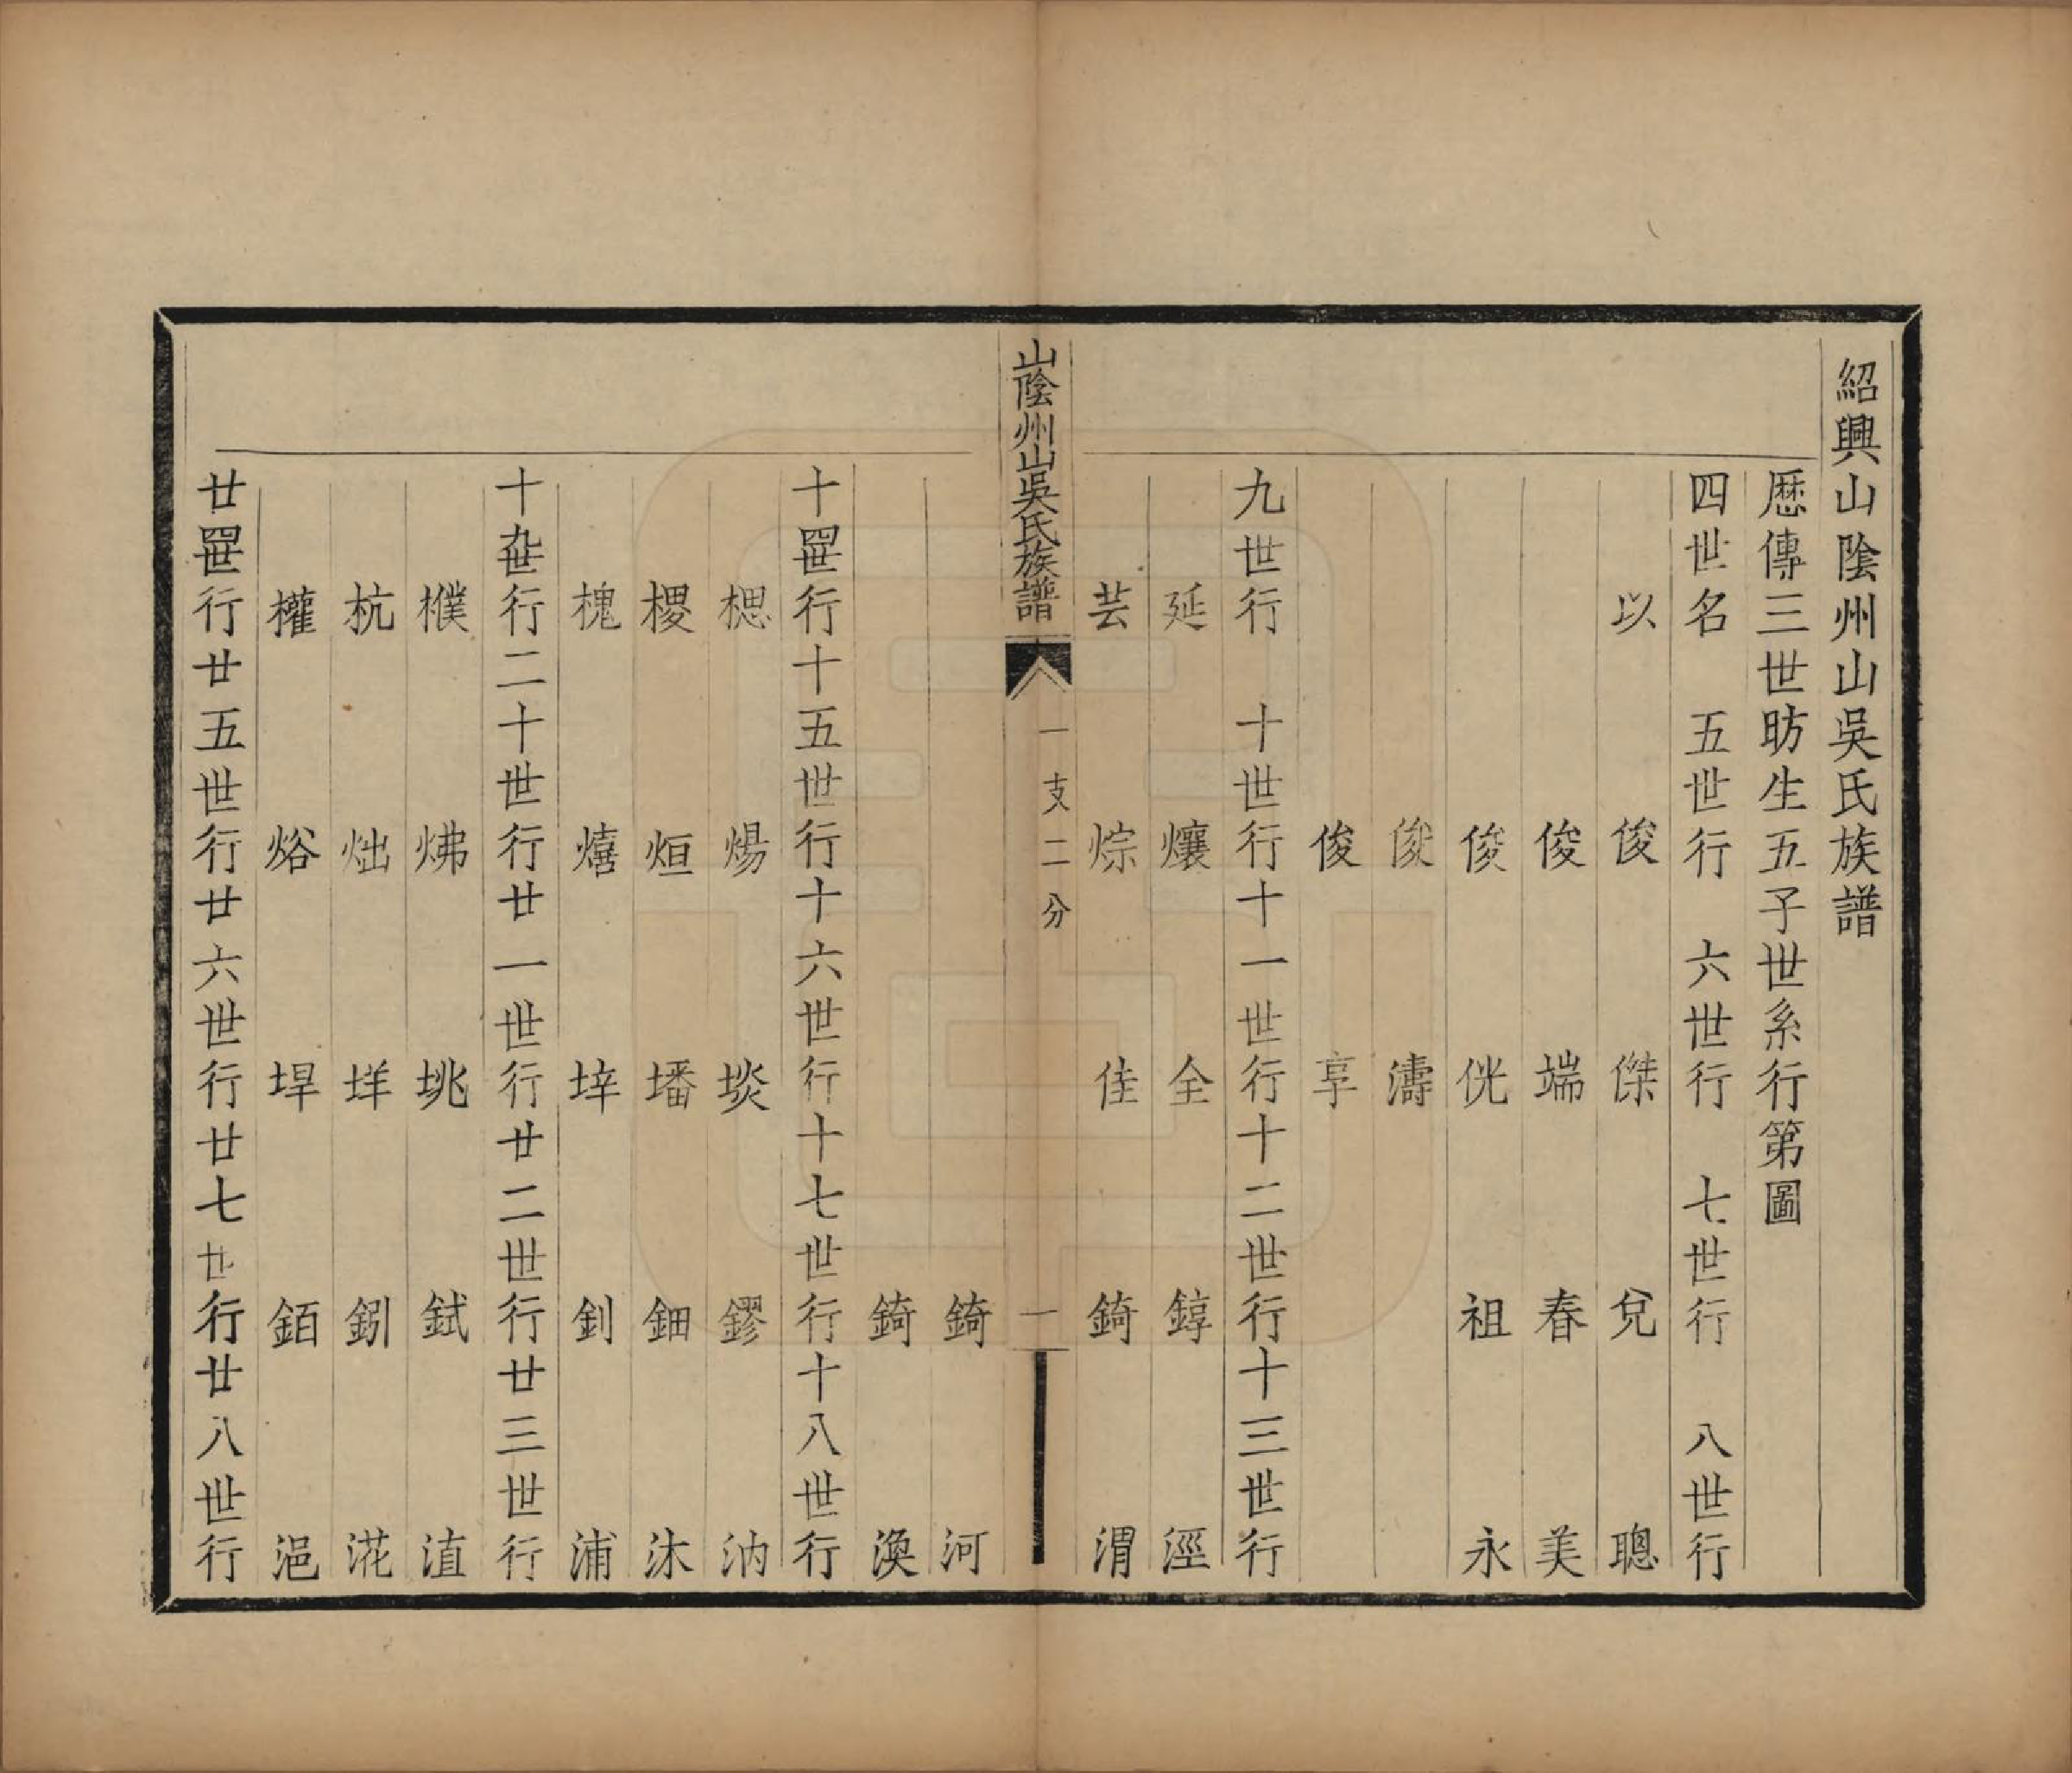 紹興山陰州山吳氏族譜
厯傳三世昉生五子世系行第圖
四世名　五世行　六世行　七世行　八世行
以　俊　傑　兌　聰
俊　端　春　美
俊　侊　祖　永
俊　濤
俊　享
九世行　十世行十一世行十二世行十三世行
延　爙　全　錞　涇
芸　㶡　佳　錡　渭
山陰州山吳氏族譜　一支二分　一
錡　河
錡　渙
十四世行十五世行十六世行十七世行十八世行
楒　煬　埮　鏐　汭
椶　烜　墦　鈿　沐
槐　熺　垶　釗　浦
十九世行二十世行廿一世行廿二世行廿三世行
樸　炥　垗　鉽　淔
杭　炪　垟　釼　㳸
權　焀　垾　銆　浥
廿四世行廿五世行廿六世行廿七世行廿八世行